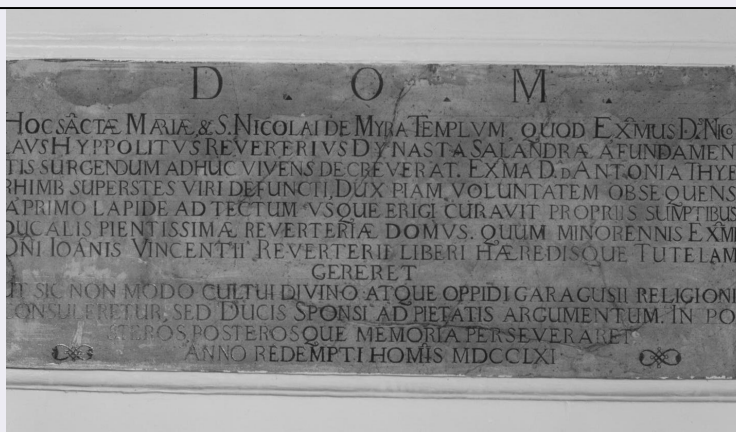 D . O . M .
HOC SÃCTÆ MARIÆ, & S. NICOLAI DE MYRA TEMPLVM, QUOD EXM̃US D.S NICO
LAVS HYPPOLITVS REVERTERIUS DYNASTA SALANDRÆ A FUNDAMEN
TIS SURGENDUM ADHUC VIVENS DECREVERAT. EXMA D.D ANTONIA THYE
RHIMB SUPERSTES VIRI DEFUNCTI, DUX PIAM VOLUNTATEM OBSEQUENS
A PRIMO LAPIDE AD TECTUM VSQUE ERIGI CURAVIT PROPRIIS SUM̃PTIBUS
DUCALIS PIENTISSIMÆ REVERTERIÆ DOMUS. QUUM MINORENNIS EXMI
DÑI IOANIS VINCENTII REVERTERII LIBERI HÆREDISQUE TUTELAM
GERERET
UT SIC NON MODO CULTUI DIVINO ATQUE OPPIDI GARAGUSII RELIGIONI
CONSULERETUR, SED DUCIS SPONSI AD PIETATIS ARGUMENTUM. IN PO
STEROS POSTEROSQUE MEMORIA PERSEVERARET
ANNO REDEMPTI HOMIS MDCCLXI